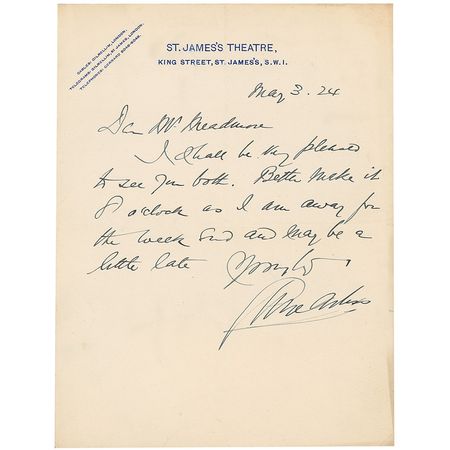 CABLES: GILMILLIN, LONDON.
TELEGRAMS: GILMILLIN, ST. JAMES, LONDON.
TELEPHONES: GERRARD
ST. JAMES'S THEATRE,
KING STREET, ST. JAMES'S, S.W.1.
May 3. 24
Dear
I shall be very pleased
to see you both. Better make it
8 o'clock as I am away for
the week End and may be a
little late